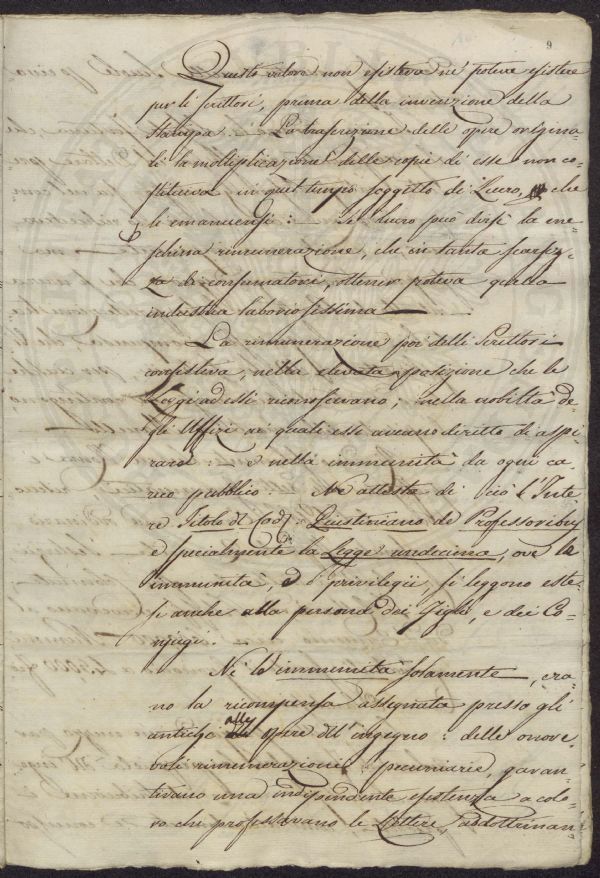 9
Questo valore non esisteva nè potere esistere
per li Scrittori, prima della invenzione della
Stampa. La trascrizione delle opere origina-
li la moltiplicazione delle copie di esse non co-
stituiva in quel tempo soggetto di Lucro, che
li emanuensi: Se lucro può dirsi la me-
schina rimunerazione, che in tanta scarsez-
za di consumatori, ottener poteva questa
industria laboriosissima
La rimunerazione poi delli Scrittori
consisteva, nella elevata posizione che le
Leggi ad essi riconoscevano; nella nobiltà de-
gli Uffizi ai quali essi aveano diritto di aspi-
rare: e nella immunità da ogni ca-
rico pubblico: Ne attesta di ciò l'Inte-
ro Titolo del Cod: Giustiniano de Professoribus
e specialmente la Legge undecima, ove le
immunità, e privilegii, si leggono este-
si anche alla persona dei Figli, e dei Co-
njugi.
Nè le immunità solamente, era-
no la ricompensa assegnata presso gli
antichi alle opere dell'ingegno: delle onore-
voli rimunerazione pecuniarie, garan-
tivano una indipendente esistenza a colo-
ro che professavano le Lettere addottrinan